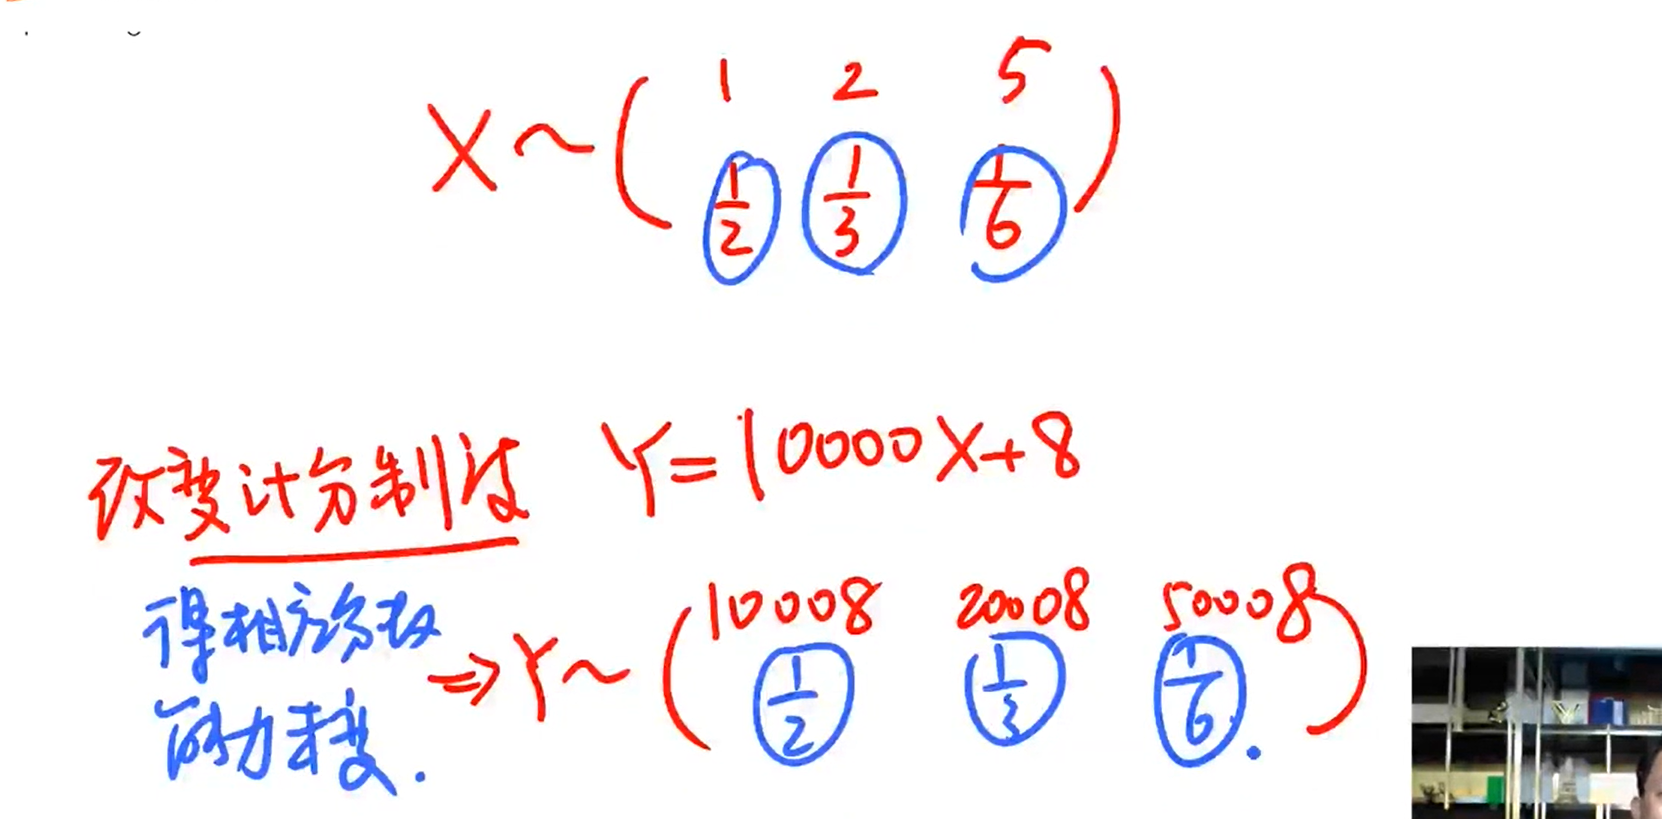 X ~ ( 1 2 5 )
1/2 1/3 1/6
改变计分制度 Y=10000X+8
得相应分数
的能力未变. ⇒ Y ~ ( 10008 20008 50008 )
1/2 1/3 1/6.